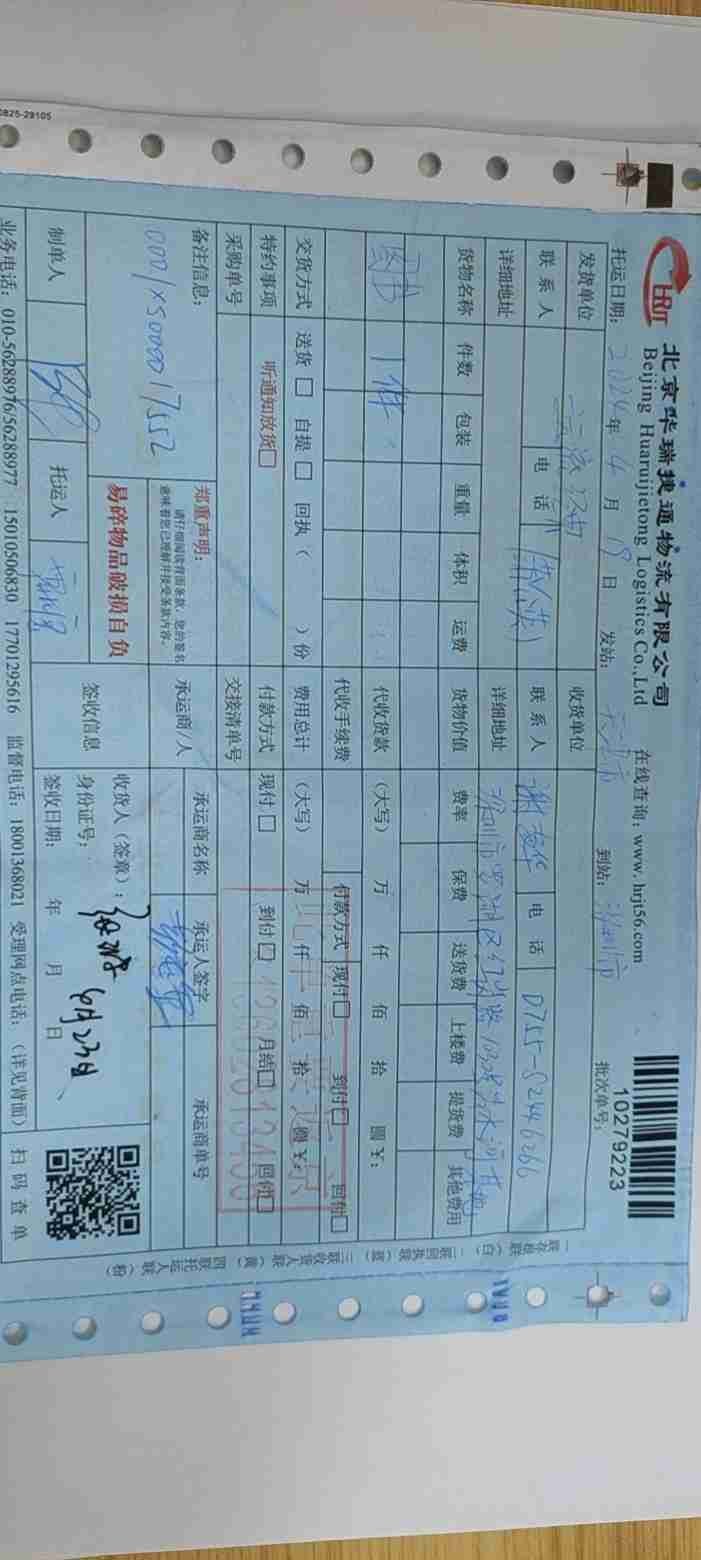 0825-29105
HRJT 北京华瑞捷通物流有限公司
Beijing Huaruijietong Logistics Co.,Ltd
在线查询：www.hrjt56.com
10279223
托运日期：2024年4月19日 发站： 到站：深圳市 批次单号：
发货单位 收货单位
联系人 电话 联系人 谢 电话 0755-82446266
详细地址 详细地址 深圳市罗湖区红岭路
货物名称 件数 包装 重量 体积 运费 货物价值 费率 保费 送货费 上楼费 提货费 其他费用
图书 1件 代收货款 （大写） 万 仟 佰 拾 圆 ￥：
代收手续费 付款方式 现付 到付 回付
交货方式 送货 自提 回执（ ）份 费用总计 （大写） 万 仟 佰 拾 圆 ￥：
特约事项 听通知放货 付款方式 现付 到付 月结 回付
采购单号 交接清单号
备注信息： 郑重声明： 承运商/人 承运商名称 承运人签字 承运商单号
请仔细阅读背面条款，您的签名
意味着您已理解并接受条款内容。
0001XS000017552
易碎物品破损自负
签收信息 收货人（签章）：
身份证号： 6月23日
签收日期： 年 月 日
制单人 托运人
业务电话：010-56288976/56288977 15010506830 17701295616 监督电话：18001368021 受理网点电话：（详见背面） 扫码查单
一联存根联（白） 二联回执联（蓝） 三联收货人联（黄） 四联托运人联（粉）